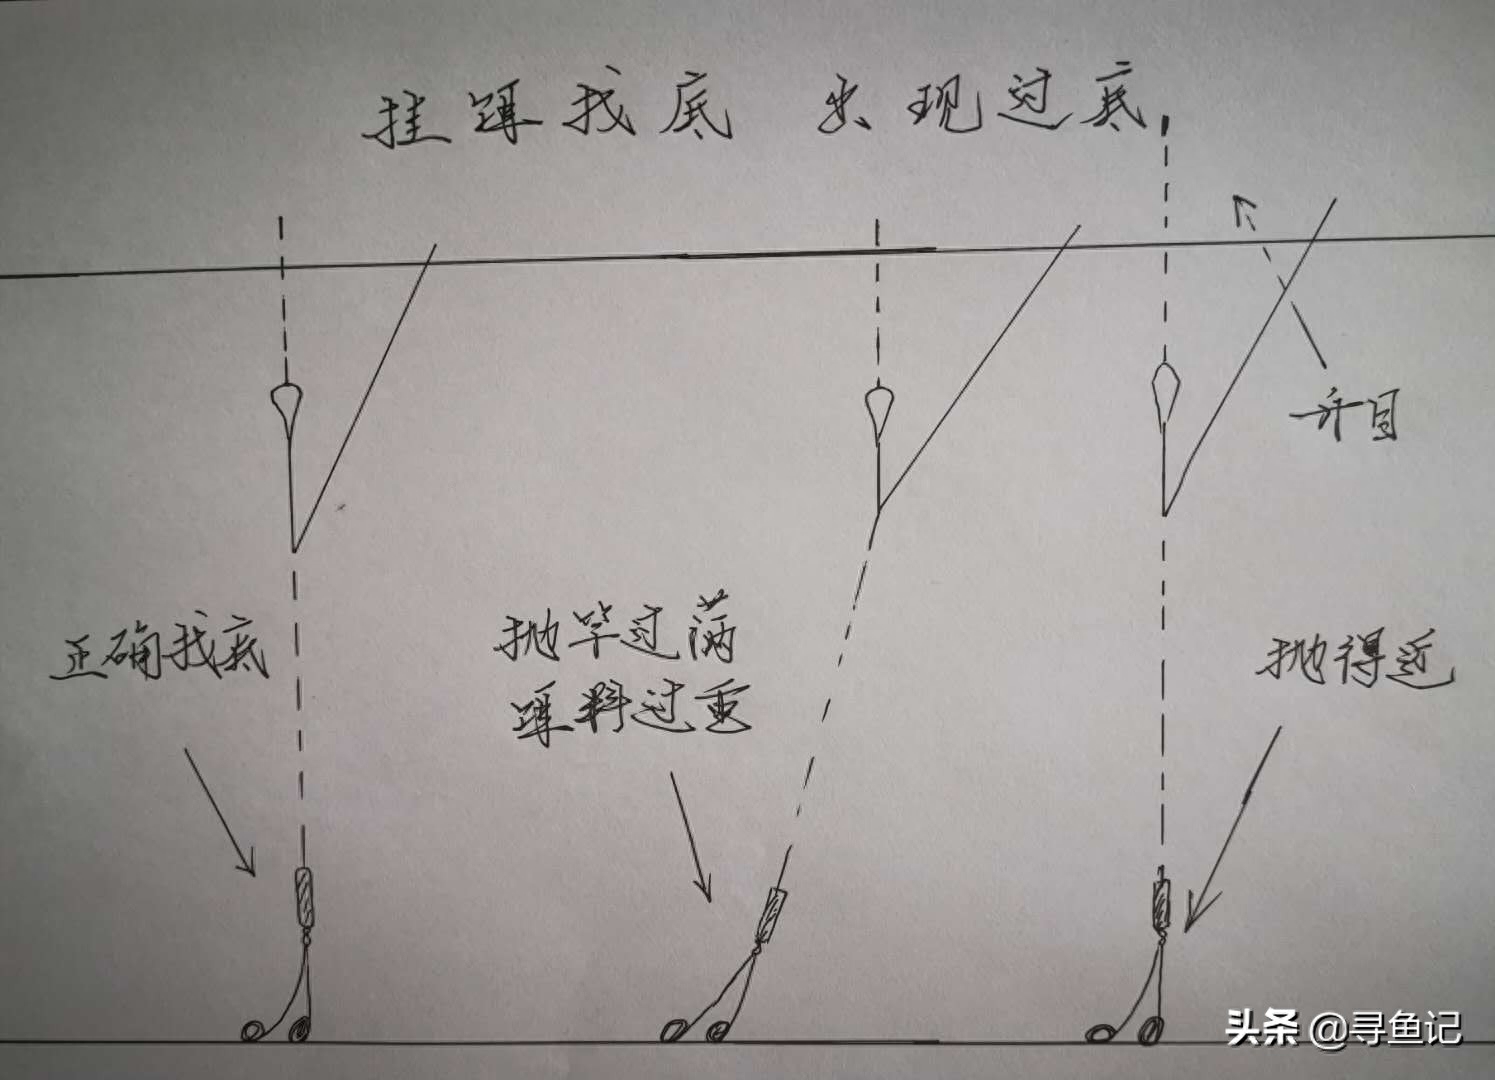 挂饵找底 出现过底.
升目
正确找底
抛竿过满
饵料过重
抛得近
头条 @寻鱼记